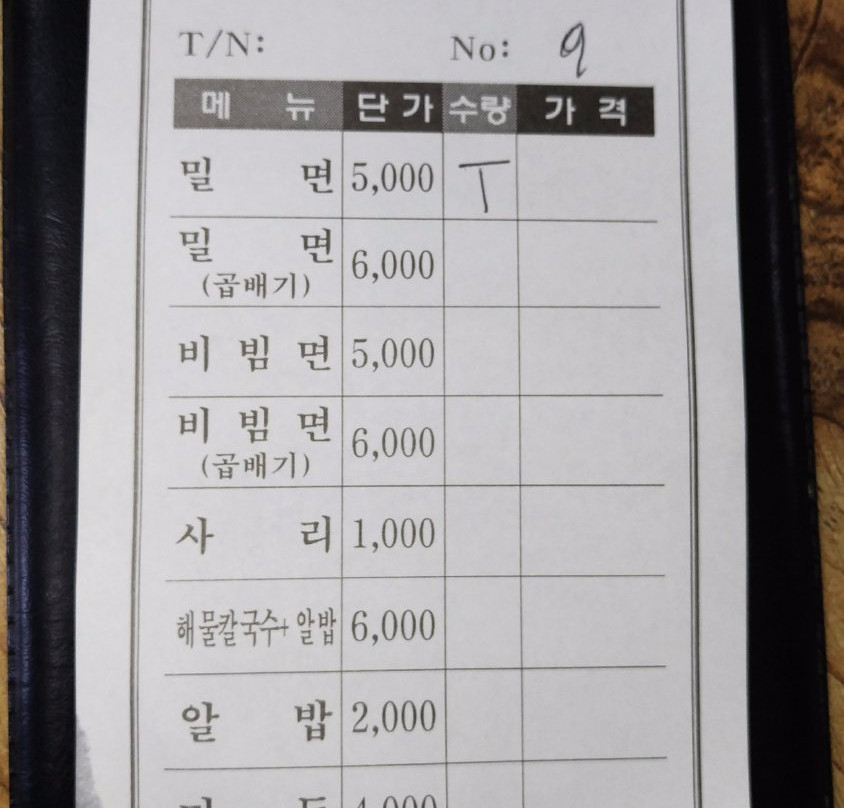 T/N: No: 9
메 뉴 단 가 수량 가 격
밀 면 5,000 T
밀 면 6,000
(곱배기)
비 빔 면 5,000
비 빔 면 6,000
(곱배기)
사 리 1,000
해물칼국수+ 알밥 6,000
알 밥 2,000
4,000